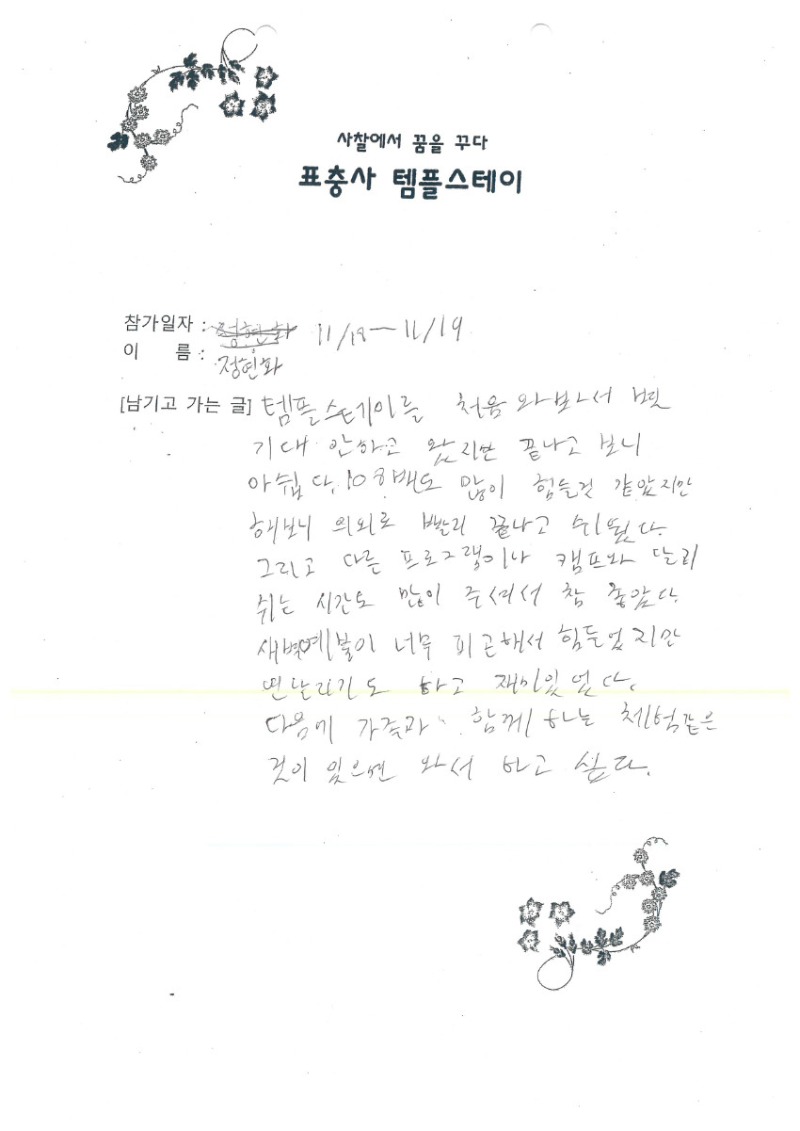 사찰에서 꿈을 꾸다
표충사 템플스테이
참가일자 : 정현화 11/18 - 11/19
이 름 : 정현화
[남기고 가는 글] 템플스테이를 처음 와보아서 별
기대 안하고 왔지만 끝나고 보니
아쉽다. 108배도 많이 힘들것 같았지만
해보니 의외로 빨리 끝나고 쉬웠다.
그리고 다른 프로그램이나 캠프와 달리
쉬는 시간도 많이 주셔서 참 좋았다.
새벽예불이 너무 피곤해서 힘들었지만
연날리기도 하고 재미있었다.
다음에 가족과 함께 하는 체험같은
것이 있으면 와서 하고 싶다.